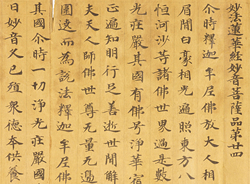 妙法蓮華經妙音菩薩品第廿四
尒時釋迦牟尼佛放大人相
眉間白豪相光遍照東方八
恒河沙等諸佛世界過是數
光莊嚴其國有佛号淨華宿
正遍知明行足善逝世間解
夫天人師佛世尊无量无邊
圍遶而為說法釋迦牟尼佛
其國尒時一切淨光莊嚴國
曰妙音久已殖衆德本供養